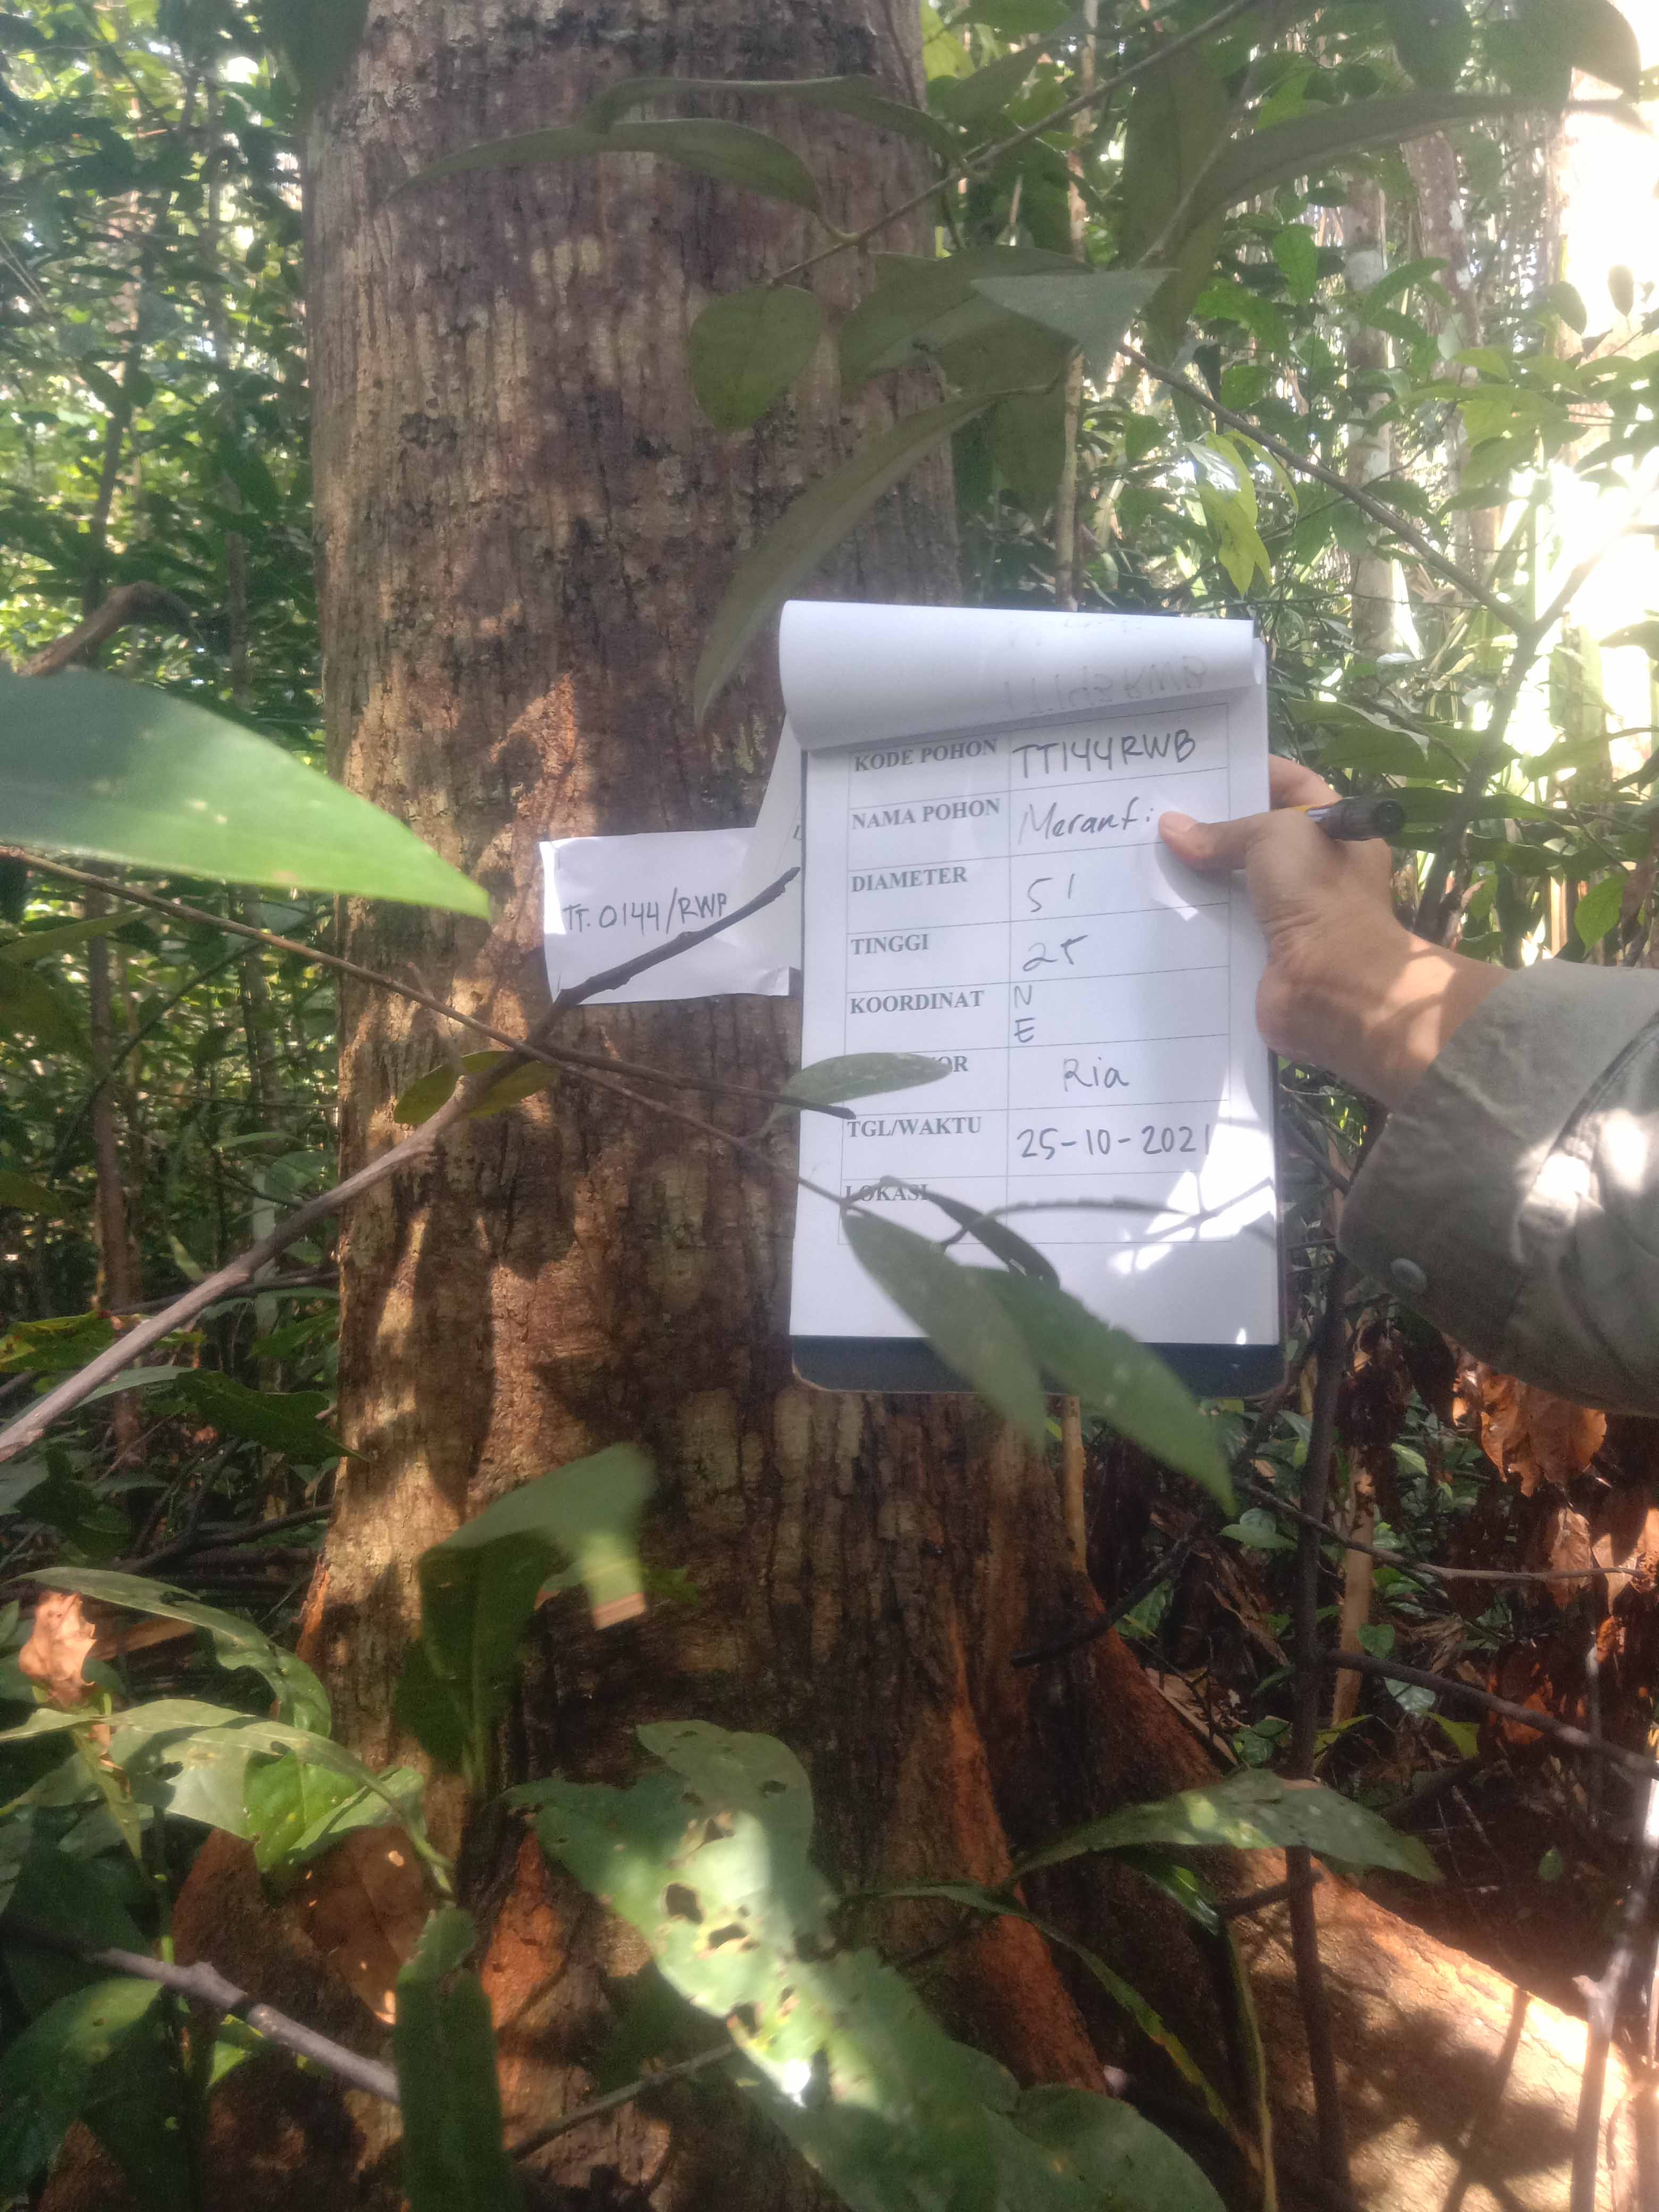 KODE POHON TT144RWB
NAMA POHON Meranti
DIAMETER 51
TINGGI 25
KOORDINAT N
E
OR Ria
TGL/WAKTU 25-10-2021
LOKASI
TT. 0144/RWP